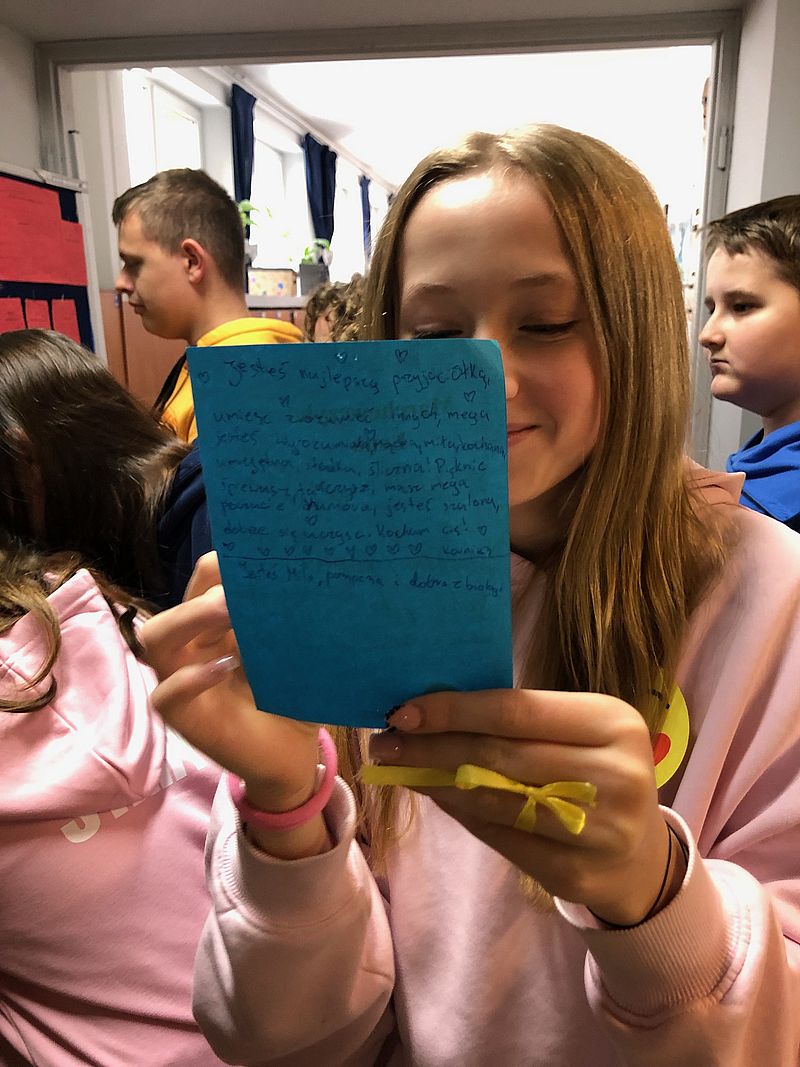 Jesteś najlepszą przyjaciółką,
umiesz zrozumieć innych, mega
jesteś wyrozumiała, miła, kochana,
umiejętna, słodka, śliczna! Pięknie
śpiewasz, tańczysz, masz mega
poczucie humoru, jesteś szalona,
dobrze się uczysz. Kocham cię!
Jesteś miła, pomocna i dobra z biologi.